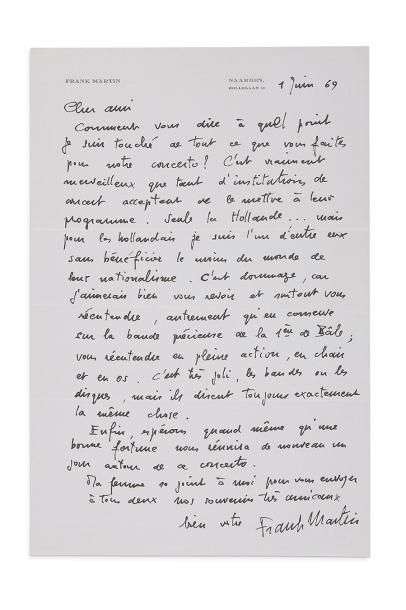 FRANK MARTIN
NAARDEN,
BOLLELAAN 11
1 Juin 69
Cher ami
Comment vous dire à quel point
je suis touché de tout ce que vous faites
pour notre concerto! C'est vraiment
merveilleux que tant d'institutions de
concert acceptent de le mettre à leur
programme. Seule la Hollande... mais
pour les hollandais je suis l'un d'entre eux
sans bénéficier le moins du monde de
leur nationalisme. C'est dommage, car
j'aimerais bien vous revoir et surtout vous
réentendre, autrement qu'en conserve
sur la bande précieuse de la 1ère de Bâle;
vous réentendre en pleine action, en chair
et en os. C'est très joli, les bandes ou les
disques, mais ils disent toujours exactement
la même chose.
Enfin, espérons quand même qu'une
bonne fortune nous réunira de nouveau un
jour autour de ce concerto.
Ma femme se joint à moi pour vous envoyer
à tous deux nos souvenirs très amicaux
bien vôtre Frank Martin